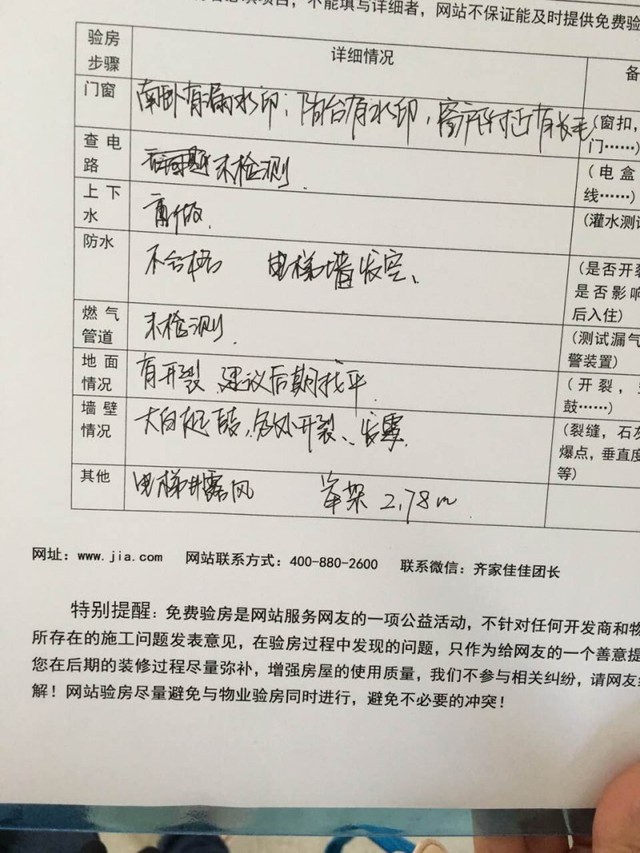 项目，不能填写详细者，网站不保证能及时提供免费验
验房步骤 详细情况 备
门窗 南卧有漏水印；阳台有水印， (窗扣，门……)
查电路 未检测. (电盒 线……)
上下水 (灌水测试
防水 不合格 电梯墙发空、 (是否开裂 是否影响 后入住)
燃气管道 未检测. (测试漏气 警装置)
地面情况 有开裂、建议后期找平. (开裂， 鼓……)
墙壁情况 大白 开裂、发霉. (裂缝，石灰 爆点，垂直度 等)
其他 电梯井露风 2.78m
网址：www.jia.com 网站联系方式：400-880-2600 联系微信：齐家佳佳团长
特别提醒：免费验房是网站服务网友的一项公益活动，不针对任何开发商和物
所存在的施工问题发表意见，在验房过程中发现的问题，只作为给网友的一个善意提
您在后期的装修过程尽量弥补，增强房屋的使用质量，我们不参与相关纠纷，请网友
解！网站验房尽量避免与物业验房同时进行，避免不必要的冲突！